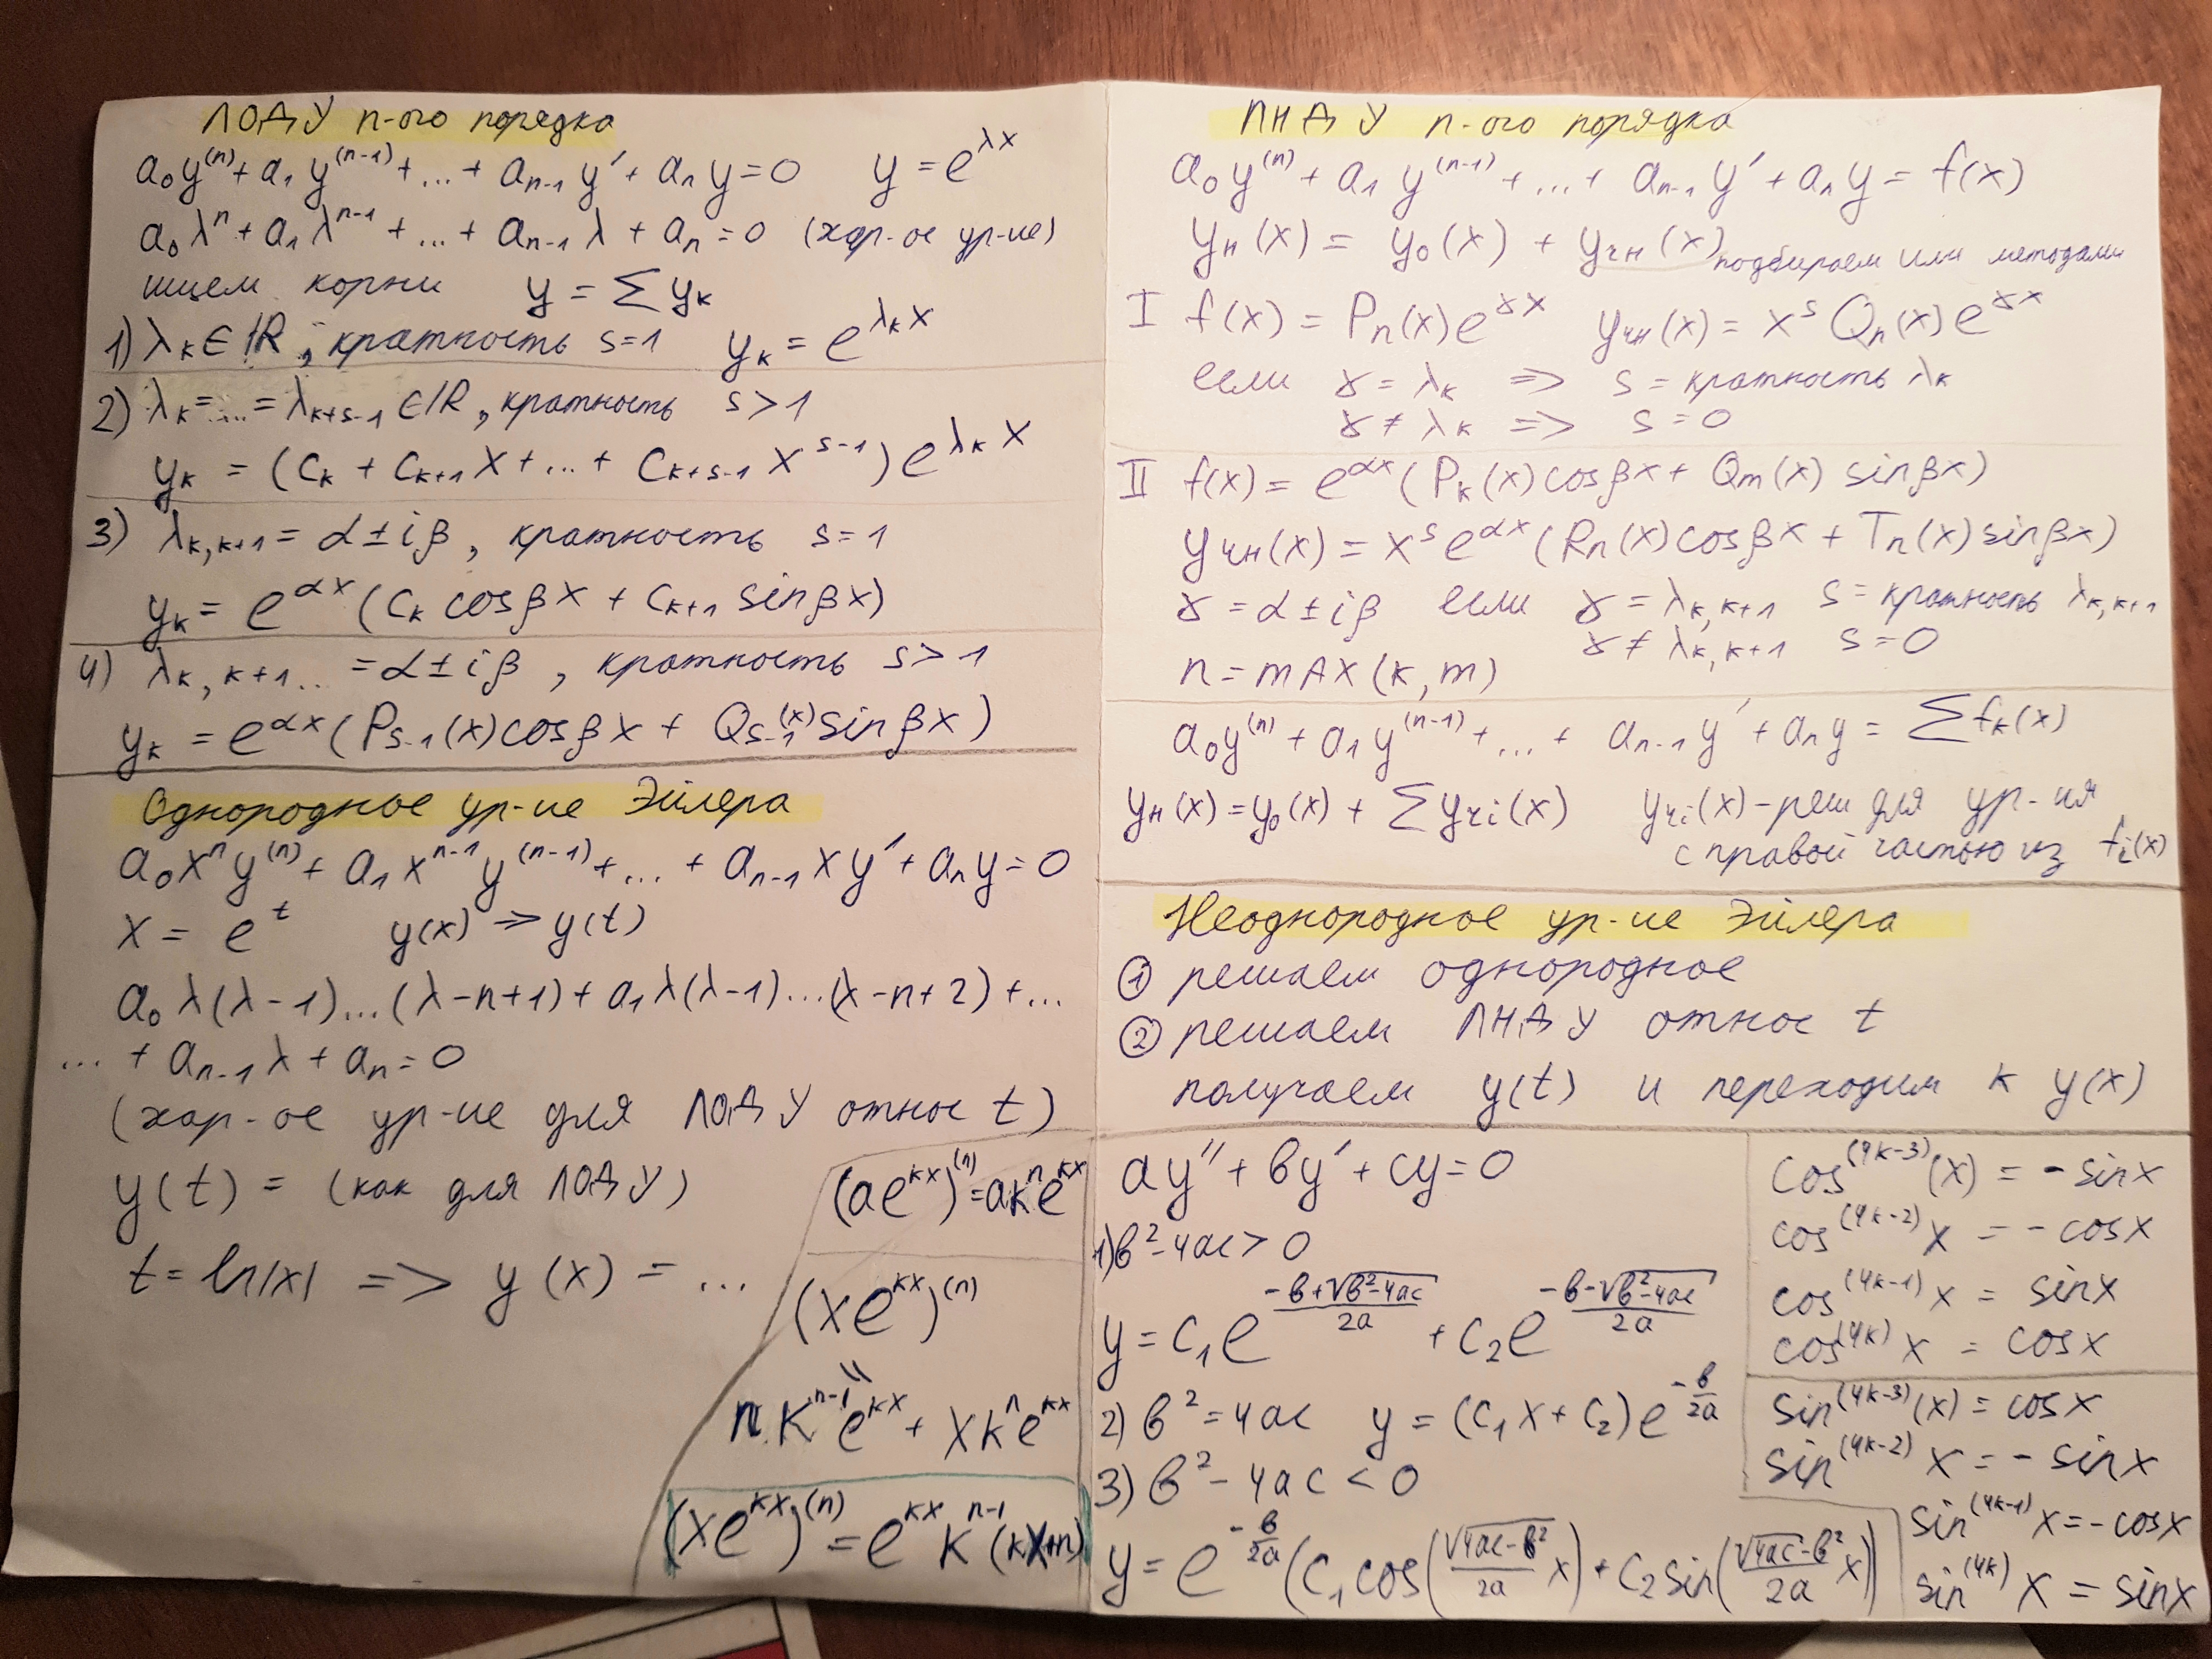 ЛОДУ n-ого порядка
a₀y⁽ⁿ⁾ + a₁y⁽ⁿ⁻¹⁾ + ... + aₙ₋₁y′ + aₙy = 0   y = e^{λx}
a₀λⁿ + a₁λⁿ⁻¹ + ... + aₙ₋₁λ + aₙ = 0 (хар-ое ур-ие)
ищем корни   y = Σ y_k
1) λ_k ∈ ℝ, кратность s=1   y_k = e^{λ_k x}
2) λ_k = ... = λ_{k+s-1} ∈ ℝ, кратность s>1
y_k = (c_k + c_{k+1}x + ... + c_{k+s-1}x^{s-1})e^{λ_k x}
3) λ_{k,k+1} = α ± iβ, кратность s=1
y_k = e^{αx}(c_k cosβx + c_{k+1} sinβx)
4) λ_{k,k+1...} = α ± iβ, кратность s>1
y_k = e^{αx}(P_{s-1}(x)cosβx + Q_{s-1}(x)sinβx)
Однородное ур-ие Эйлера
a₀xⁿy⁽ⁿ⁾ + a₁xⁿ⁻¹y⁽ⁿ⁻¹⁾ + ... + aₙ₋₁xy′ + aₙy = 0
x = e^t   y(x) => y(t)
a₀λ(λ-1)...(λ-n+1) + a₁λ(λ-1)...(λ-n+2) + ...
... + aₙ₋₁λ + aₙ = 0
(хар-ое ур-ие для ЛОДУ относ t)
y(t) = (как для ЛОДУ)
t = ln|x| => y(x) = ...
(ae^{kx})^{(n)} = akⁿe^{kx}
(xe^{kx})^{(n)}
=
n·k^{n-1}e^{kx} + xkⁿe^{kx}
(xe^{kx})^{(n)} = e^{kx}k^{n-1}(kx+n)
ЛНДУ n-ого порядка
a₀y⁽ⁿ⁾ + a₁y⁽ⁿ⁻¹⁾ + ... + aₙ₋₁y′ + aₙy = f(x)
y_н(x) = y₀(x) + y_чн(x) подбираем или методами
I f(x) = Pₙ(x)e^{γx}   y_чн(x) = x^s Qₙ(x)e^{γx}
если γ = λ_k => s = кратность λ_k
γ ≠ λ_k => s = 0
II f(x) = e^{αx}(P_k(x)cosβx + Q_m(x) sinβx)
y_чн(x) = x^s e^{αx}(Rₙ(x)cosβx + Tₙ(x)sinβx)
γ = α ± iβ   если γ = λ_{k,k+1} s = кратность λ_{k,k+1}
γ ≠ λ_{k,k+1} s = 0
n = mAx(k,m)
a₀y⁽ⁿ⁾ + a₁y⁽ⁿ⁻¹⁾ + ... + aₙ₋₁y′ + aₙy = Σf_k(x)
y_н(x) = y₀(x) + Σy_чi(x)   y_чi(x) - реш для ур-ия
с правой частью из f_i(x)
Неоднородное ур-ие Эйлера
① решаем однородное
② решаем ЛНДУ относ t
получаем y(t) и переходим к y(x)
ay″ + by′ + cy = 0
1) b²-4ac > 0
y = c₁e^{\frac{-b+√(b²-4ac)}{2a}} + c₂e^{\frac{-b-√(b²-4ac)}{2a}}
2) b² = 4ac   y = (c₁x + c₂)e^{-\frac{b}{2a}}
3) b² - 4ac < 0
y = e^{-\frac{b}{2a}}(c₁cos(\frac{√(4ac-b²)}{2a}x) + c₂sin(\frac{√(4ac-b²)}{2a}x))
cos^{(4k-3)}(x) = -sinx
cos^{(4k-2)}x = -cosx
cos^{(4k-1)}x = sinx
cos^{(4k)}x = cosx
sin^{(4k-3)}(x) = cosx
sin^{(4k-2)}x = -sinx
sin^{(4k-1)}x = -cosx
sin^{(4k)}x = sinx